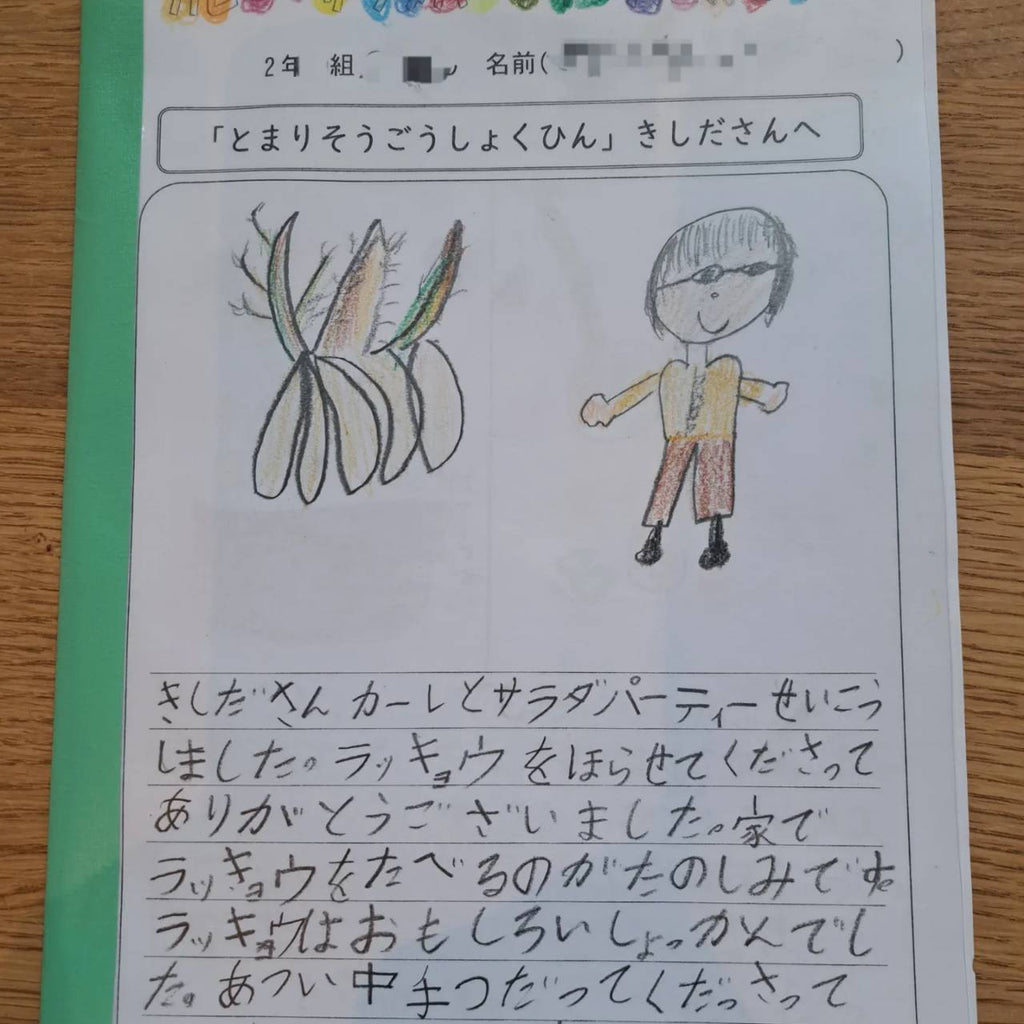 2年 組 名前( )
「とまりそうごうしょくひん」きしださんへ
きしださん カーレとサラダパーティーせいこう
しました。ラッキョウをほらせてくださって
ありがとうございました。家で
ラッキョウをたべるのがたのしみです
ラッキョウはおもしろいしょっかんでし
た。あつい中手つだってくだっさって